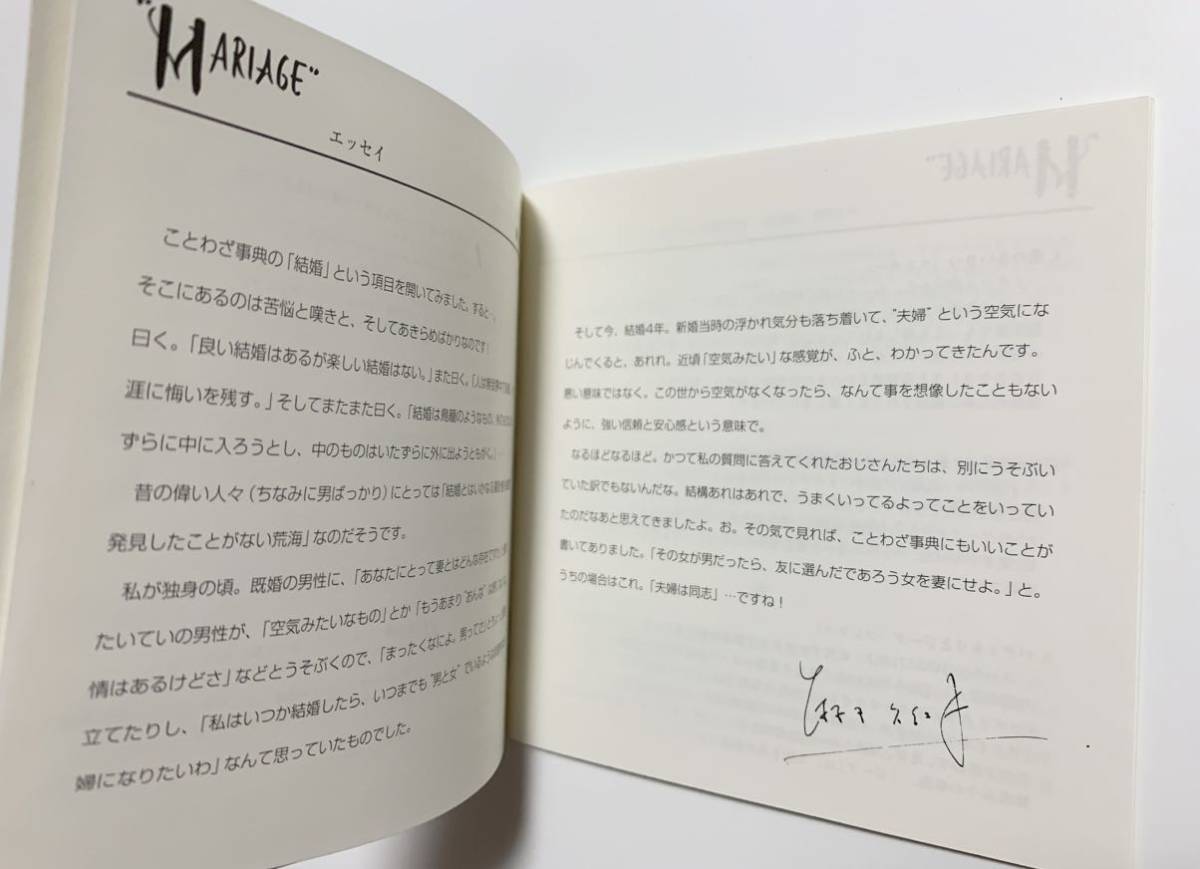 "MARIAGE"
エッセイ
ことわざ事典の「結婚」という項目を開いてみました。すると…。
そこにあるのは苦悩と嘆きと、そしてあきらめばかりなのです!
曰く。「良い結婚はあるが楽しい結婚はない。」また曰く。「人は
涯に悔いを残す。」そしてまたまた曰く。「結婚は鳥籠のようなもの。
ずらに中に入ろうとし、中のものはいたずらに外に出ようともがく。」…
昔の偉い人々(ちなみに男ばっかり)にとっては「結婚とはいかなる
発見したことがない荒海」なのだそうです。
私が独身の頃。既婚の男性に、「あなたにとって妻とはどんな存在ですか」
たいていの男性が、「空気みたいなもの」とか「もうあまり"おんな"は
情はあるけどさ」などとうそぶくので、「まったくなによ。男ってさ」
立てたりし、「私はいつか結婚したら、いつまでも"男と女"でいるような
婦になりたいわ」なんて思っていたものでした。
そして今、結婚4年。新婚当時の浮かれ気分も落ち着いて、"夫婦"という空気にな
じんでくると、あれれ。近頃「空気みたい」な感覚が、ふと、わかってきたんです。
悪い意味ではなく。この世から空気がなくなったら、なんて事を想像したこともない
ように、強い信頼と安心感という意味で。
なるほどなるほど。かつて私の質問に答えてくれたおじさんたちは、別にうそぶい
ていた訳でもないんだな。結構あれはあれで、うまくいってるよってことをいってい
たのだなあと思えてきましたよ。お。その気で見れば、ことわざ事典にもいいことが
書いてありました。「その女が男だったら、友に選んだであろう女を妻にせよ。」と。
うちの場合はこれ。「夫婦は同志」…ですね!